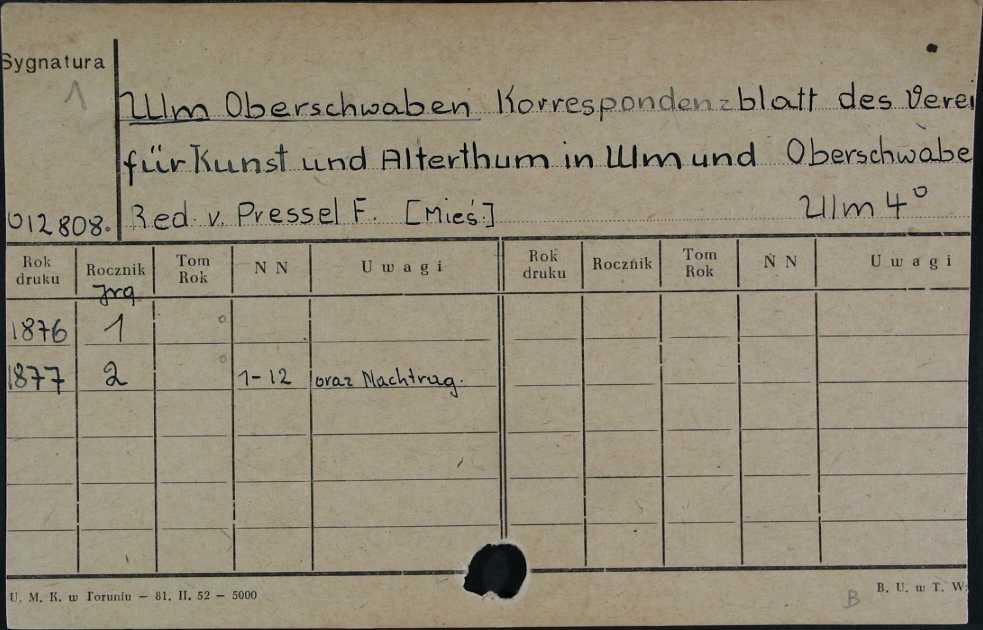 Sygnatura
1
Ulm Oberschwaben Korrespondenzblatt des Verei
für Kunst und Alterthum in Ulm und Oberschwabe
012808. Red. v. Pressel F. [Mieś.] Ulm 4°
Rok druku Rocznik Tom Rok N N Uwagi Rok druku Rocznik Tom Rok N N Uwagi
Jrg
1876 1
1877 2 1-12 oraz Nachtrag.
U. M. K. w Toruniu – 81. II. 52 – 5000 B B. U. w T. W